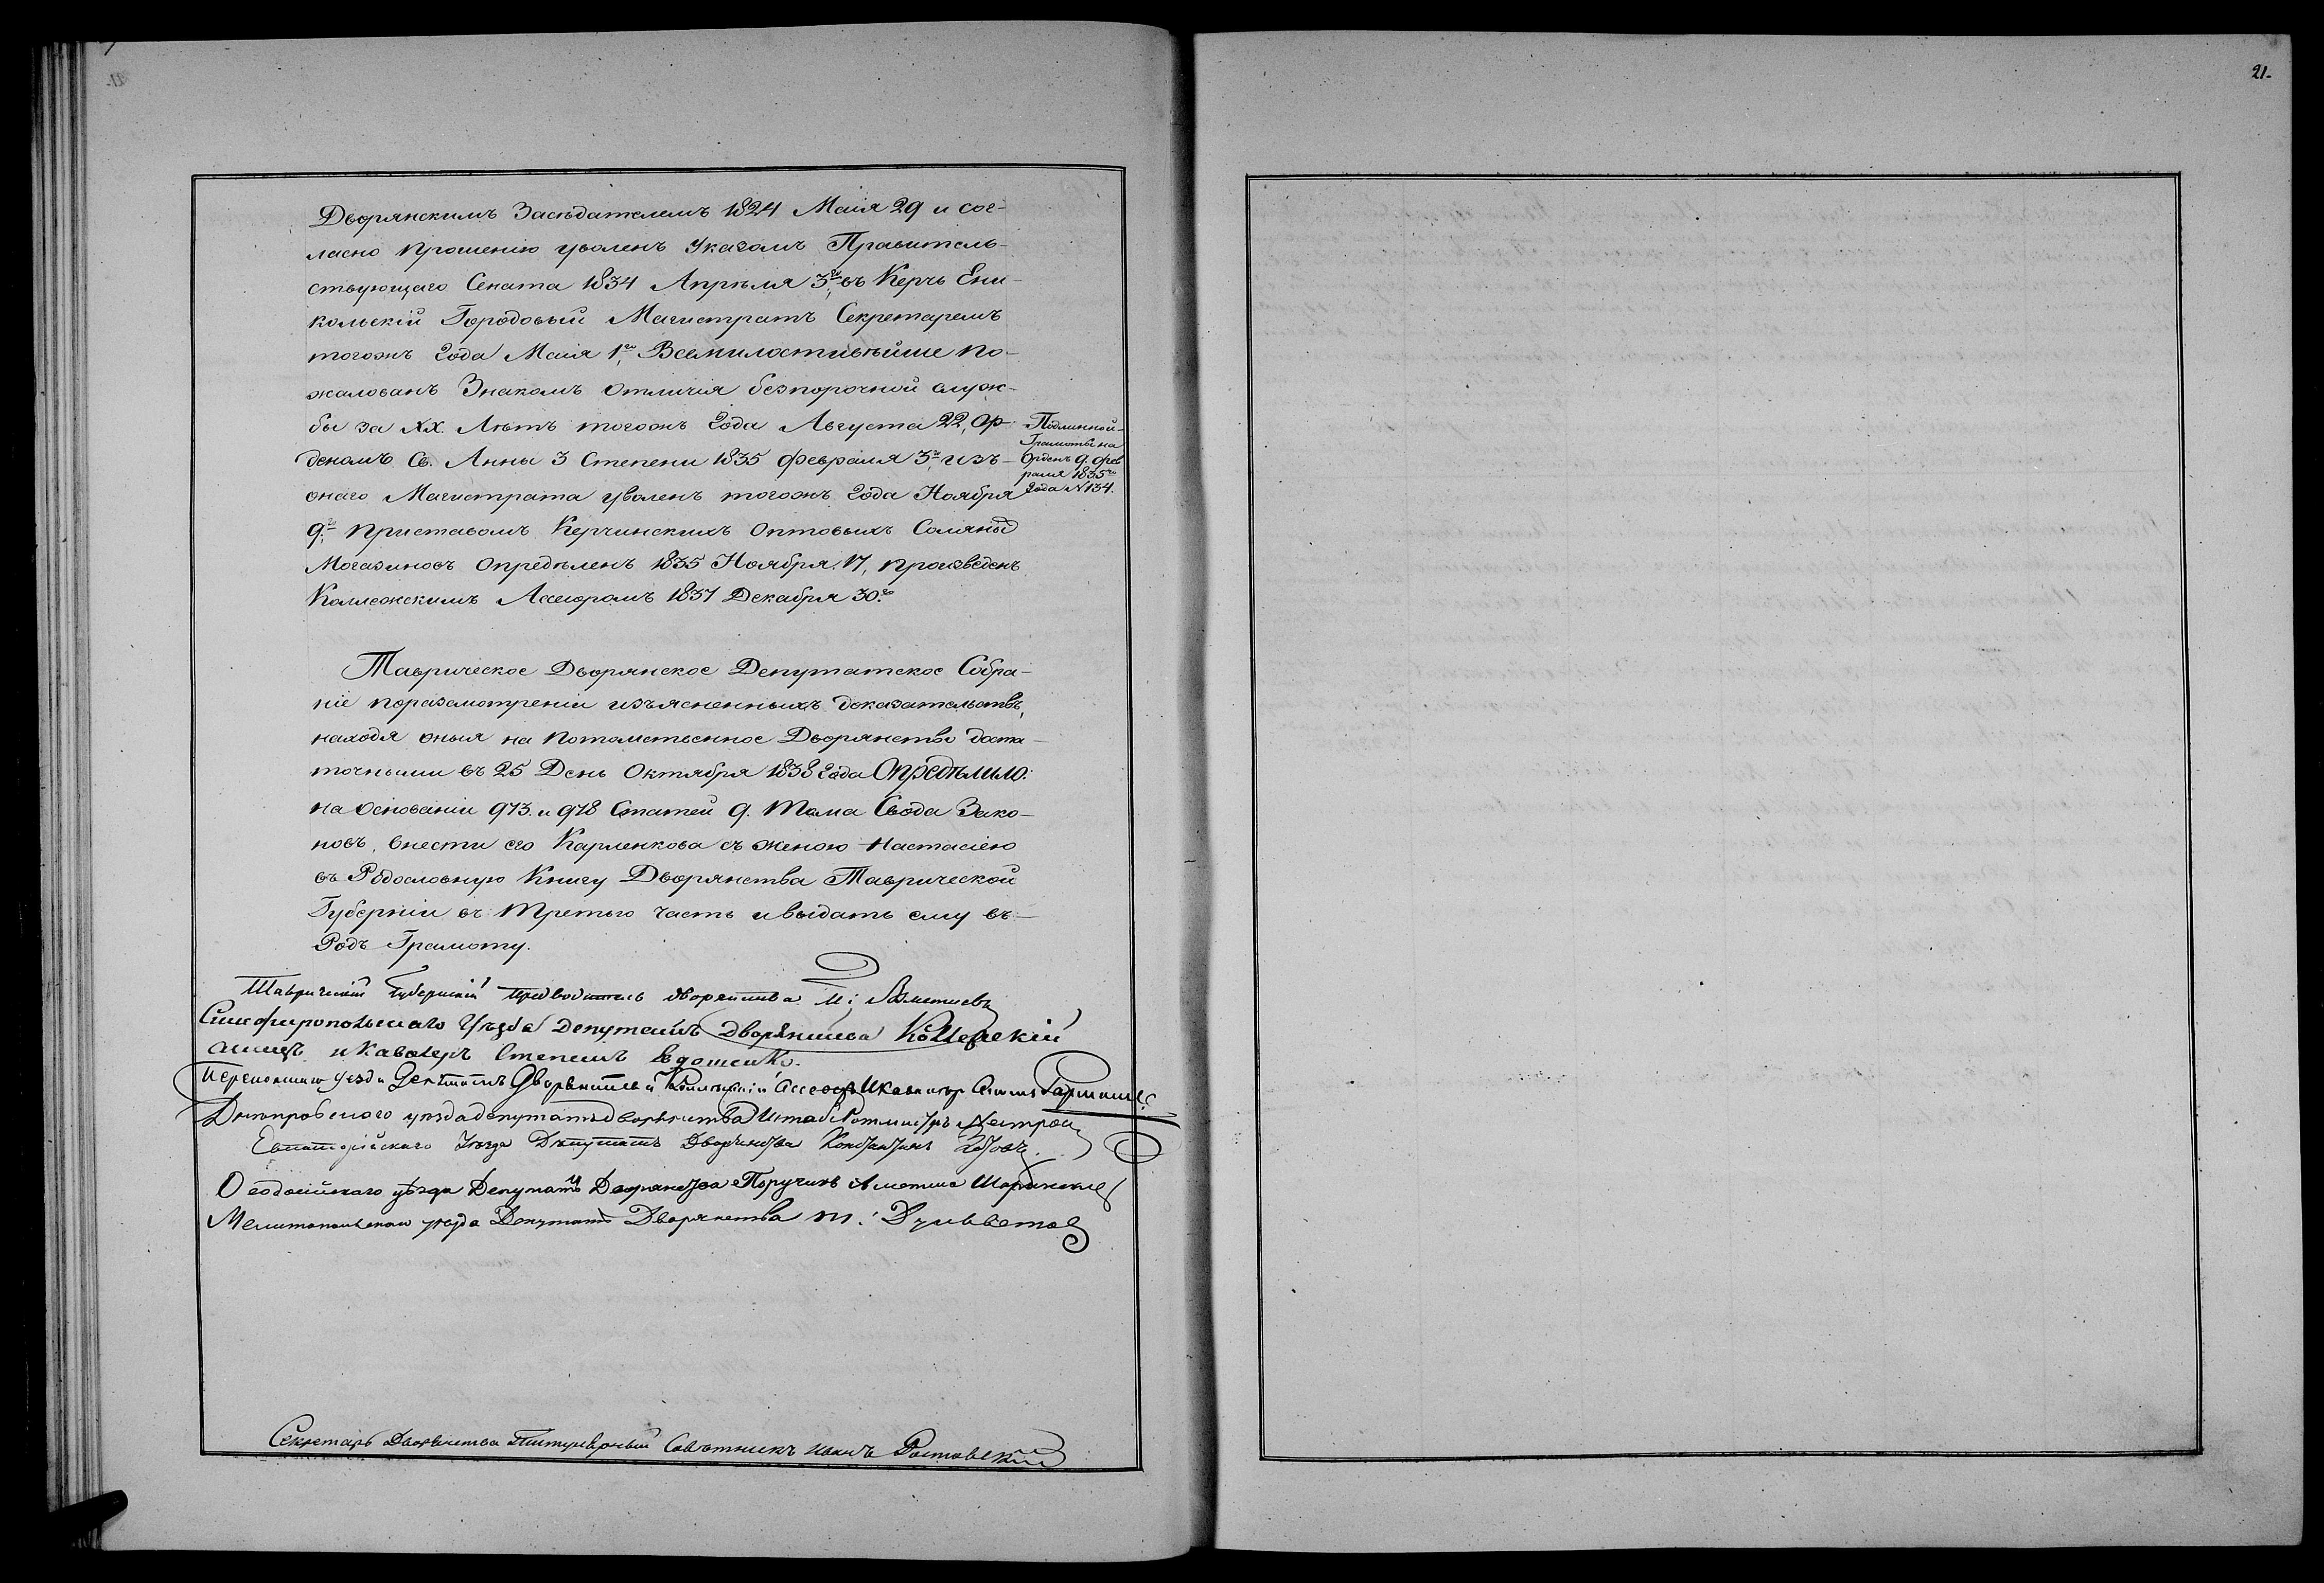 21.
Дворянскимъ Засѣдателемъ 1824 Маія 29 и сог-
ласно прошенію уволенъ Указомъ Правитель-
ствующаго Сената 1834 Апрѣля 3го, въ Керчь Ени-
кольскій Городовый Магистратъ Секретаремъ
тогожъ Года Маія 1го, Всемилостивѣйше по-
жалованъ Знакомъ отличія безпорочной служ-
бы за XX. Лѣтъ тогожъ Года Августа 22, Ор-
деномъ Св. Анны 3 Степени 1835 февраля 3го, изъ
онаго Магистрата уволенъ тогожъ Года Ноября
9.го Приставомъ Керчинскихъ Оптовыхъ Соляныхъ
Магазиновъ Опредѣленъ 1835 Ноября 17, произведенъ
Коллежскимъ Ассесоромъ 1837 Декабря 30.го
Подлинной
Грамоты на
Орденъ 9. фев
раля 1835го
Года № 134.
Таврическое Дворянское Депутатское Собра-
ніе поразсмотреніи изъясненныхъ доказательствъ,
находя оныя на потомственное Дворянство доста-
точными въ 25 День Октября 1838 Года Опредѣлило:
на основаніи 973. и 978 Статей 9. Тома Свода Зако-
новъ, внести его Карленкова съ женою Настасіею
въ Родословную Книгу Дворянства Таврической
Губерніи въ Третью часть и выдать ему въ
Родъ Грамоту.
Таврическій Губернскій Предводитель дворянства М:
Симферопольскаго Уѣзда Депутатъ Дворянства Коллежскій
и Кавалеръ Степанъ
уѣзда Депутатъ Дворянства Коллежскій Ассесоръ и Кавалеръ
Днѣпровскаго уѣзда депутатъ дворянства Штабъ Ротмистръ
Евпаторійскаго Уѣзда Депутатъ Дворянства Константинъ
Ѳеодосійскаго уѣзда Депутатъ Дворянства Поручикъ Аметша Ширинскій
Мелитопольскаго уѣзда Депутатъ Дворянства
Секретарь Дворянства Титулярный Совѣтникъ Иванъ Ростовскій